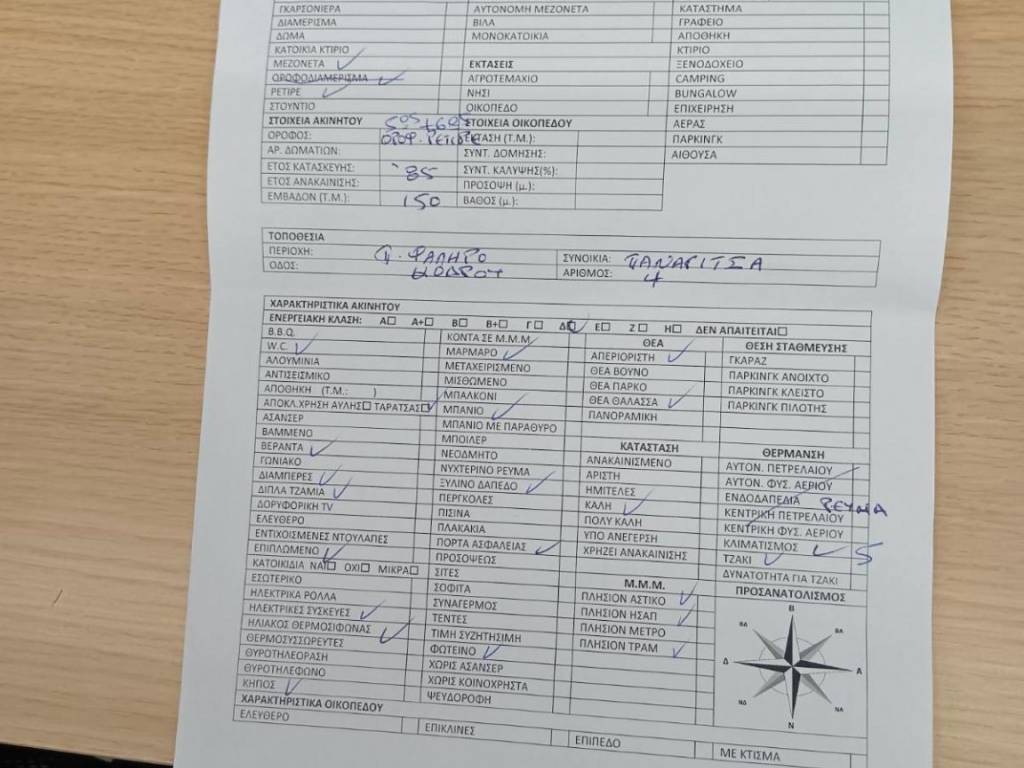 ΓΚΑΡΣΟΝΙΕΡΑ
ΔΙΑΜΕΡΙΣΜΑ
ΔΩΜΑ
ΚΑΤΟΙΚΙΑ ΚΤΙΡΙΟ
ΜΕΖΟΝΕΤΑ ✓
ΟΡΟΦΟΔΙΑΜΕΡΙΣΜΑ ✓
ΡΕΤΙΡΕ ✓
ΣΤΟΥΝΤΙΟ
ΑΥΤΟΝΟΜΗ ΜΕΖΟΝΕΤΑ
ΒΙΛΑ
ΜΟΝΟΚΑΤΟΙΚΙΑ
ΕΚΤΑΣΕΙΣ
ΑΓΡΟΤΕΜΑΧΙΟ
ΝΗΣΙ
ΟΙΚΟΠΕΔΟ
ΚΑΤΑΣΤΗΜΑ
ΓΡΑΦΕΙΟ
ΑΠΟΘΗΚΗ
ΚΤΙΡΙΟ
ΞΕΝΟΔΟΧΕΙΟ
CAMPING
BUNGALOW
ΕΠΙΧΕΙΡΗΣΗ
ΑΕΡΑΣ
ΠΑΡΚΙΝΓΚ
ΑΙΘΟΥΣΑ
ΣΤΟΙΧΕΙΑ ΑΚΙΝΗΤΟΥ 5ος+6ος
ΟΡΟΦΟΣ: ΟΡΟΦ. ΡΕΤΙΡΕ
ΑΡ. ΔΩΜΑΤΙΩΝ:
ΕΤΟΣ ΚΑΤΑΣΚΕΥΗΣ: '85
ΕΤΟΣ ΑΝΑΚΑΙΝΙΣΗΣ:
ΕΜΒΑΔΟΝ (Τ.Μ.): 150
ΣΤΟΙΧΕΙΑ ΟΙΚΟΠΕΔΟΥ
ΕΚΤΑΣΗ (Τ.Μ.):
ΣΥΝΤ. ΔΟΜΗΣΗΣ:
ΣΥΝΤ. ΚΑΛΥΨΗΣ(%):
ΠΡΟΣΟΨΗ (μ.):
ΒΑΘΟΣ (μ.):
ΤΟΠΟΘΕΣΙΑ
ΠΕΡΙΟΧΗ: Π. ΦΑΛΗΡΟ ΣΥΝΟΙΚΙΑ: ΠΑΝΑΓΙΤΣΑ
ΟΔΟΣ: ΚΟΔΡΟΥ ΑΡΙΘΜΟΣ: 4
ΧΑΡΑΚΤΗΡΙΣΤΙΚΑ ΑΚΙΝΗΤΟΥ
ΕΝΕΡΓΕΙΑΚΗ ΚΛΑΣΗ: Α☐ Α+☐ Β☐ Β+☐ Γ☐ Δ☐✓ Ε☐ Ζ☐ Η☐ ΔΕΝ ΑΠΑΙΤΕΙΤΑΙ☐
B.B.Q.
W.C. ✓
ΑΛΟΥΜΙΝΙΑ
ΑΝΤΙΣΕΙΣΜΙΚΟ
ΑΠΟΘΗΚΗ (Τ.Μ.: )
ΑΠΟΚΛ.ΧΡΗΣΗ ΑΥΛΗΣ☐ ΤΑΡΑΤΣΑΣ☐✓
ΑΣΑΝΣΕΡ
ΒΑΜΜΕΝΟ
ΒΕΡΑΝΤΑ ✓
ΓΩΝΙΑΚΟ
ΔΙΑΜΠΕΡΕΣ ✓
ΔΙΠΛΑ ΤΖΑΜΙΑ ✓
ΔΟΡΥΦΟΡΙΚΗ TV
ΕΛΕΥΘΕΡΟ
ΕΝΤΙΧΟΙΣΜΕΝΕΣ ΝΤΟΥΛΑΠΕΣ
ΕΠΙΠΛΩΜΕΝΟ ✓
ΚΑΤΟΙΚΙΔΙΑ ΝΑΙ☐ ΟΧΙ☐ ΜΙΚΡΑ☐
ΕΣΩΤΕΡΙΚΟ
ΗΛΕΚΤΡΙΚΑ ΡΟΛΛΑ
ΗΛΕΚΤΡΙΚΕΣ ΣΥΣΚΕΥΕΣ ✓
ΗΛΙΑΚΟΣ ΘΕΡΜΟΣΙΦΩΝΑΣ ✓
ΘΕΡΜΟΣΥΣΣΩΡΕΥΤΕΣ
ΘΥΡΟΤΗΛΕΟΡΑΣΗ
ΘΥΡΟΤΗΛΕΦΩΝΟ
ΚΗΠΟΣ ✓
ΚΟΝΤΑ ΣΕ Μ.Μ.Μ.
ΜΑΡΜΑΡΟ ✓
ΜΕΤΑΧΕΙΡΙΣΜΕΝΟ
ΜΙΣΘΩΜΕΝΟ
ΜΠΑΛΚΟΝΙ
ΜΠΑΝΙΟ ✓
ΜΠΑΝΙΟ ΜΕ ΠΑΡΑΘΥΡΟ
ΜΠΟΙΛΕΡ
ΝΕΟΔΜΗΤΟ
ΝΥΧΤΕΡΙΝΟ ΡΕΥΜΑ
ΞΥΛΙΝΟ ΔΑΠΕΔΟ ✓
ΠΕΡΓΚΟΛΕΣ
ΠΙΣΙΝΑ
ΠΛΑΚΑΚΙΑ
ΠΟΡΤΑ ΑΣΦΑΛΕΙΑΣ ✓
ΠΡΟΣΟΨΕΩΣ
ΣΙΤΕΣ
ΣΟΦΙΤΑ
ΣΥΝΑΓΕΡΜΟΣ
ΤΕΝΤΕΣ
ΤΙΜΗ ΣΥΖΗΤΗΣΙΜΗ
ΦΩΤΕΙΝΟ ✓
ΧΩΡΙΣ ΑΣΑΝΣΕΡ
ΧΩΡΙΣ ΚΟΙΝΟΧΡΗΣΤΑ
ΨΕΥΔΟΡΟΦΗ
ΘΕΑ
ΑΠΕΡΙΟΡΙΣΤΗ ✓
ΘΕΑ ΒΟΥΝΟ
ΘΕΑ ΠΑΡΚΟ
ΘΕΑ ΘΑΛΑΣΣΑ ✓
ΠΑΝΟΡΑΜΙΚΗ
ΚΑΤΑΣΤΑΣΗ
ΑΝΑΚΑΙΝΙΣΜΕΝΟ
ΑΡΙΣΤΗ
ΗΜΙΤΕΛΕΣ
ΚΑΛΗ ✓
ΠΟΛΥ ΚΑΛΗ
ΥΠΟ ΑΝΕΓΕΡΣΗ
ΧΡΗΖΕΙ ΑΝΑΚΑΙΝΙΣΗΣ
Μ.Μ.Μ.
ΠΛΗΣΙΟΝ ΑΣΤΙΚΟ ✓
ΠΛΗΣΙΟΝ ΗΣΑΠ ✓
ΠΛΗΣΙΟΝ ΜΕΤΡΟ
ΠΛΗΣΙΟΝ ΤΡΑΜ ✓
ΘΕΣΗ ΣΤΑΘΜΕΥΣΗΣ
ΓΚΑΡΑΖ
ΠΑΡΚΙΝΓΚ ΑΝΟΙΧΤΟ
ΠΑΡΚΙΝΓΚ ΚΛΕΙΣΤΟ
ΠΑΡΚΙΝΓΚ ΠΙΛΟΤΗΣ
ΘΕΡΜΑΝΣΗ
ΑΥΤΟΝ. ΠΕΤΡΕΛΑΙΟΥ
ΑΥΤΟΝ. ΦΥΣ. ΑΕΡΙΟΥ
ΕΝΔΟΔΑΠΕΔΙΑ ΡΕΥΜΑ
ΚΕΝΤΡΙΚΗ ΠΕΤΡΕΛΑΙΟΥ
ΚΕΝΤΡΙΚΗ ΦΥΣ. ΑΕΡΙΟΥ
ΚΛΙΜΑΤΙΣΜΟΣ ✓ 5
ΤΖΑΚΙ ✓
ΔΥΝΑΤΟΤΗΤΑ ΓΙΑ ΤΖΑΚΙ
ΠΡΟΣΑΝΑΤΟΛΙΣΜΟΣ
Β
ΒΔ ΒΑ
Δ Α
ΝΔ ΝΑ
Ν
ΧΑΡΑΚΤΗΡΙΣΤΙΚΑ ΟΙΚΟΠΕΔΟΥ
ΕΛΕΥΘΕΡΟ ΕΠΙΚΛΙΝΕΣ ΕΠΙΠΕΔΟ ΜΕ ΚΤΙΣΜΑ